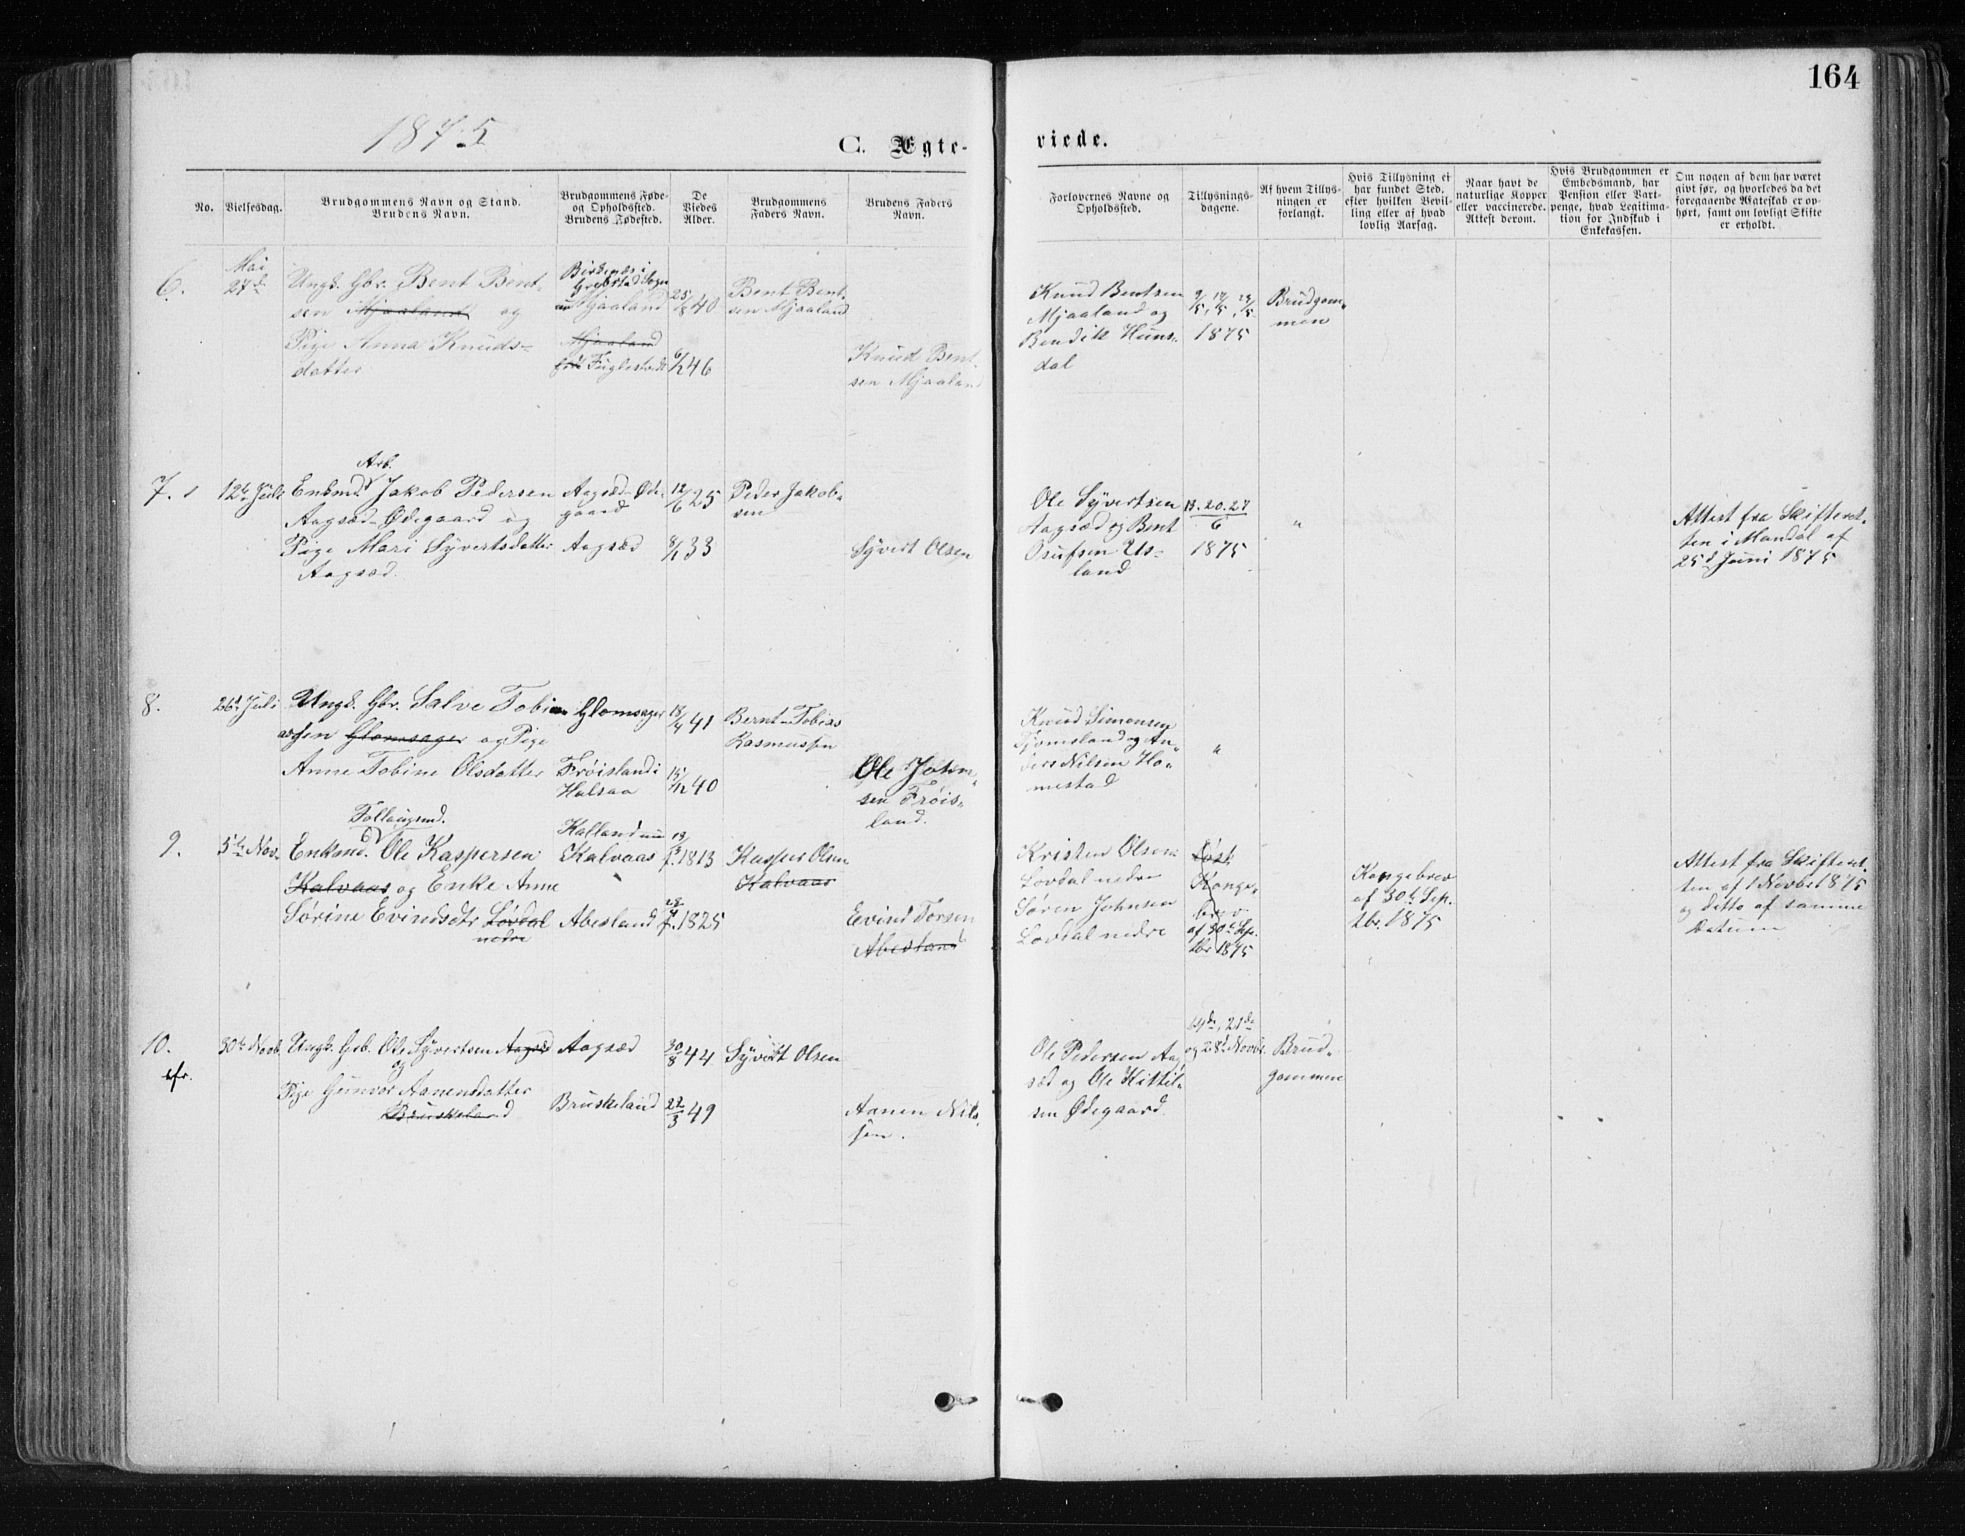 164
1875
C. Ægte-
viede.
No.
Vielsesdag.
Brudgommens Navn og Stand.
Brudens Navn.
Brudgommens Føde-
og Opholdssted.
Brudens Fødested.
De
Viedes
Alder.
Brudgommens
Faders Navn.
Brudens Faders
Navn.
Forlovernes Navne og
Opholdssted.
Tillysnings-
dagene.
Af hvem Tillys-
ningen er
forlangt.
Hvis Tillysning ei
har fundet Sted,
efter hvilken Bevil-
ling eller af hvad
lovlig Aarsag.
Naar havt de
naturlige Kopper
eller vaccinerede.
Attest derom.
Hvis Brudgommen er
Embedsmand, har
Pension eller Vart-
penge, hvad Legitima-
tion for Indskud i
Enkekassen.
Om nogen af dem har været
givt før, og hvorledes da det
foregaaende Mateskab er op-
hørt, samt om lovligt Skifte
er erholdt.
6.
Mai
27de
Ungk. Gbr. Bent Bent-
sen Mjaaland og
Pige Anna Knuds-
datter
Grebstad Sogn
Mjaaland
Mjaaland
Fuglestad
25/8 40
6/12 46
Bent Bent-
sen Mjaaland
Knud Bent-
sen Mjaaland
Knud Bentsen
Mjaaland og
Bendik Huns-
dal
1875
Brudgom-
men
7.
12te Juli
Arb.
Enkmd. Jakob Pedersen
Aagsæd-Ødegaard og
Pige Mari Syvertsdatter
Aagsæd.
Aagsæd-Øde-
gaard
Aagsæd
12/6 25
8/1 33
Peder Jakob-
sen
Syvert Olsen
Ole Syvertsen
Aagsæd og Bent
Osufsen Us-
land
13. 20. 27/6
1875
"
Attest fra Skifteret-
ten i Mandal af
25d Juni 1875
8.
26d Juli
Ungk. Gbr. Salve Tobi
assen Glomsager og Pige
Anne Tobine Olsdatter
Glomsager
Frøisland i
Halsaa
18/4 41
15/12 40
Bernt Tobias
Rasmussen
Ole John-
sen Frøis-
land.
Knud Simonsen
Fjomsland og An-
ders Nilsen Ho-
mestad
"
9.
5te Nov.
Follaugmd.
Enkmd. Ole Kaspersen
Kalvaas og Enke Anne
Sørine Evindsdtr Løvdal
nedre
Kalland
Kalvaas
Abesland
1813
1825
Kasper Olsen
Kalvaas
Evind Torsen
Abesland
Kristen Olsen
Lovdal nedre
Søren Johnsen
Lovdal nedre
Konge-
brev
af 30te Sep.
tbr 1875
Kongebrev
af 30te Sep.
tbr. 1875
Attest fra Skifteret-
ten af 1 Novbr 1875
og ditto af samme
Datum
10.
cfr.
30te Novb.
Ungk. Grb. Ole Syvertsen Aagsæd
og
Pige Gunvor Aanensdatter
Bruskeland
Aagsæd
Bruskeland
30/8 44
22/3 49
Syvert Olsen
Aanen Nils-
sen.
Ole Pedersen Aag-
sæd og Ole Kittil-
sen Ødegaard
14de, 21de
og 28d Novbr.
Brud-
gommen